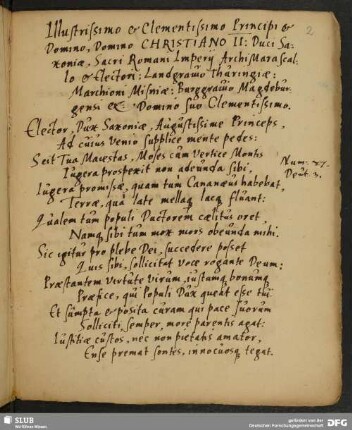 2
Illustrissimo & Clementissimo Principi &
Domino, Domino CHRISTIANO II: Duci Sa-
xoniæ, Sacri Romani Imperij ArchiMarscal-
lo & Electori: Landgravio Thuringiæ:
Marchioni Misniæ: Burggravio Magdebur-
gensi &c Domino suo Clementissimo.
Elector, Dux Saxoniæ, Augustissime Princeps,
Ad cuius venio supplice mente pedes:
Seit Tua Maiestas, Moses cum vertice Montis
Num. 27.
Iugera prospexit non adeunda sibi,
Deut. 3.
Iugera promissa, quam tum Cananæus habebat,
Terræ, qua late mellaq lacq fluant:
Qualem tum populi Ductorem cælitus oret,
Namq, sibi tum mox mors obeunda mihi.
Sic igitur pro plebe Dei, succedere posset
Quis sibi, sollicitat voce rogante Deum:
Præstantem virtute virum, iustumq, bonumq
Præfice, qui Populi Dux queat esse tui
Et sumpta & posita curam qui pace suorum
Solliciti, semper, more parentis agat:
Iustitiæ custos, nec non pietatis amator,
Ense premat sontes, innocuosq, tegat.
SLUB
Wir führen Wissen.
gefördert von der
Deutschen Forschungsgemeinschaft
DFG